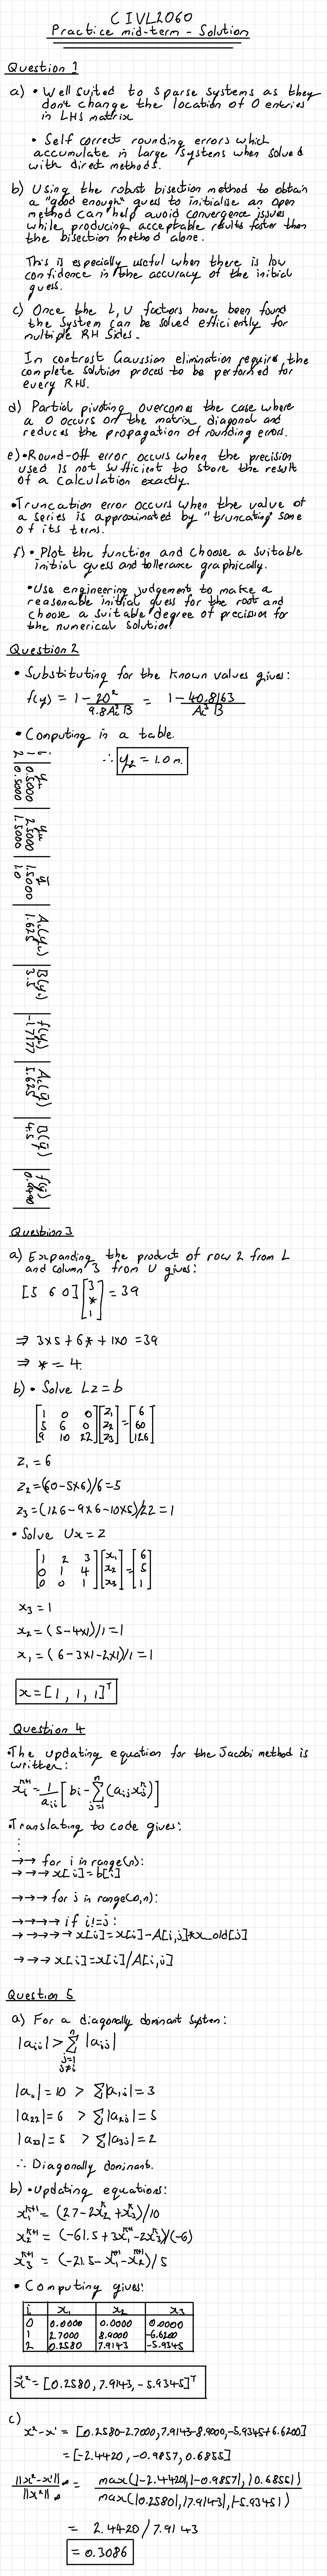 CIVL2060
Practice mid-term - Solution
Question 1
a) • Well suited to sparse systems as they
don't change the location of 0 entries
in LHS matrix
• Self correct rounding errors which
accumulate in large systems when solved
with direct methods.
b) Using the robust bisection method to obtain
a "good enough" guess to initialise an open
method can help avoid convergence issues
while producing acceptable results faster than
the bisection method alone.
This is especially useful when there is low
confidence in the accuracy of the initial
guess.
c) Once the L, U factors have been found
the system can be solved efficiently for
multiple RH sides.
In contrast Gaussian elimination requires the
complete solution process to be performed for
every RHS.
d) Partial pivoting overcomes the case where
a 0 occurs on the matrix diagonal and
reduces the propagation of rounding errors.
e) • Round-off error occurs when the precision
used is not sufficient to store the result
of a calculation exactly.
• Truncation error occurs when the value of
a series is approximated by "truncating" some
of its terms.
f) • Plot the function and choose a suitable
initial guess and tollerance graphically.
• Use engineering judgement to make a
reasonable initial guess for the root and
choose a suitable degree of precision for
the numerical solution.
Question 2
• Substituting for the known values gives:
f(y) = 1 - 20² / 9.8A_c³ B = 1 - 40.8163 / A_c³ B
• Computing in a table.
∴ y₂ = 1.0 m.
i | y_L | y_u | ȳ | A_c(y_L) | B(y_L) | f(y_L) | A_c(ȳ) | B(ȳ) | f(ȳ)
1 | 0.5000 | 2.5000 | 1.5000 | 1.625 | 3.5 | -1.7177 | 5.625 | 4.5
2 | 0.5000 | 1.5000 | 1.0
Question 3
a) Expanding the product of row 2 from L
and column 3 from U gives:
[5 6 0] [3 * 1] = 39
⇒ 3×5 + 6* + 1×0 = 39
⇒ * = 4.
b) • Solve Lz = b
[1 0 0] [z₁] = [6]
[5 6 0] [z₂] [60]
[9 10 22] [z₃] [126]
z₁ = 6
z₂ = (60 - 5×6)/6 = 5
z₃ = (126 - 9×6 - 10×5)/22 = 1
• Solve Ux = z
[1 2 3] [x₁] = [6]
[0 1 4] [x₂] [5]
[0 0 1] [x₃] [1]
x₃ = 1
x₂ = (5 - 4×1)/1 = 1
x₁ = (6 - 3×1 - 2×1)/1 = 1
x = [1, 1, 1]ᵀ
Question 4
• The updating equation for the Jacobi method is
written:
xᵢᵏ⁺¹ = 1/aᵢᵢ [bᵢ - Σⱼ₌₁ⁿ (aᵢⱼ xⱼᵏ)]
• Translating to code gives:
⋮
→→ for i in range(n):
→→→ x[i] = b[i]
→→→ for j in range(0,n):
→→→→ if i!=j:
→→→→→ x[i] = x[i] - A[i,j]*x_old[j]
→→→ x[i] = x[i]/A[i,i]
Question 5
a) For a diagonally dominant system:
|aᵢᵢ| > Σ |aᵢⱼ|
j=1
j≠i
|a₁₁| = 10 > Σ|a₁ⱼ| = 3
|a₂₂| = 6 > Σ|a₂ⱼ| = 5
|a₃₃| = 5 > Σ|a₃ⱼ| = 2
∴ Diagonally dominant.
b) • Updating equations:
x₁ᵏ⁺¹ = (27 - 2x₂ᵏ + x₃ᵏ)/10
x₂ᵏ⁺¹ = (-61.5 + 3x₁ᵏ⁺¹ - 2x₃ᵏ)/(-6)
x₃ᵏ⁺¹ = (-21.5 - x₁ᵏ⁺¹ - x₂ᵏ⁺¹)/5
• Computing gives:
i | x₁ | x₂ | x₃
0 | 0.0000 | 0.0000 | 0.0000
1 | 2.7000 | 8.9000 | -6.6200
2 | 0.2580 | 7.9143 | -5.9345
x² = [0.2580, 7.9143, -5.9345]ᵀ
c)
x² - x¹ = [0.2580-2.7000, 7.9143-8.9000, -5.9345+6.6200]
= [-2.4420, -0.9857, 0.6855]
||x² - x¹||∞ / ||x²||∞ = max(|-2.4420|, |-0.9857|, |0.6855|) / max(|0.2580|, |7.9143|, |-5.9345|)
= 2.4420 / 7.9143
= 0.3086